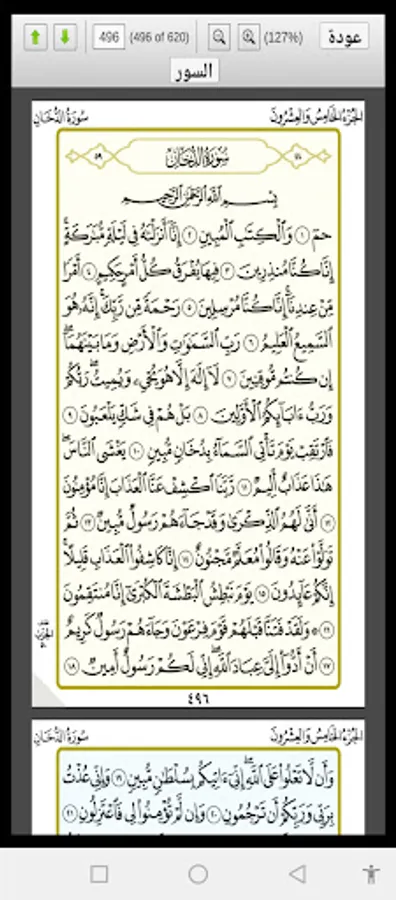 496 (496 of 620) (127%) عودة
السور
سُورَةُ الدُّخَانِ الجُزْءُ الخَامِسُ وَالعِشْرُونَ
سُورَةُ الدُّخَانِ
بِسْمِ اللَّهِ الرَّحْمَٰنِ الرَّحِيمِ
حمٓ ١ وَٱلْكِتَٰبِ ٱلْمُبِينِ ٢ إِنَّآ أَنزَلْنَٰهُ فِى لَيْلَةٍ مُّبَٰرَكَةٍ
إِنَّا كُنَّا مُنذِرِينَ ٣ فِيهَا يُفْرَقُ كُلُّ أَمْرٍ حَكِيمٍ ٤ أَمْرًا
مِّنْ عِندِنَآ إِنَّا كُنَّا مُرْسِلِينَ ٥ رَحْمَةً مِّن رَّبِّكَ إِنَّهُۥ هُوَ
ٱلسَّمِيعُ ٱلْعَلِيمُ ٦ رَبِّ ٱلسَّمَٰوَٰتِ وَٱلْأَرْضِ وَمَا بَيْنَهُمَآ
إِن كُنتُم مُّوقِنِينَ ٧ لَآ إِلَٰهَ إِلَّا هُوَ يُحْىِۦ وَيُمِيتُ رَبُّكُمْ
وَرَبُّ ءَابَآئِكُمُ ٱلْأَوَّلِينَ ٨ بَلْ هُمْ فِى شَكٍّ يَلْعَبُونَ ٩
فَٱرْتَقِبْ يَوْمَ تَأْتِى ٱلسَّمَآءُ بِدُخَانٍ مُّبِينٍ ١٠ يَغْشَى ٱلنَّاسَ
هَٰذَا عَذَابٌ أَلِيمٌ ١١ رَّبَّنَا ٱكْشِفْ عَنَّا ٱلْعَذَابَ إِنَّا مُؤْمِنُونَ
١٢ أَنَّىٰ لَهُمُ ٱلذِّكْرَىٰ وَقَدْ جَآءَهُمْ رَسُولٌ مُّبِينٌ ١٣ ثُمَّ
تَوَلَّوْا۟ عَنْهُ وَقَالُوا۟ مُعَلَّمٌ مَّجْنُونٌ ١٤ إِنَّا كَاشِفُوا۟ ٱلْعَذَابِ قَلِيلًا
إِنَّكُمْ عَآئِدُونَ ١٥ يَوْمَ نَبْطِشُ ٱلْبَطْشَةَ ٱلْكُبْرَىٰٓ إِنَّا مُنتَقِمُونَ
١٦ ۞ وَلَقَدْ فَتَنَّا قَبْلَهُمْ قَوْمَ فِرْعَوْنَ وَجَآءَهُمْ رَسُولٌ كَرِيمٌ
١٧ أَنْ أَدُّوٓا۟ إِلَىَّ عِبَادَ ٱللَّهِ إِنِّى لَكُمْ رَسُولٌ أَمِينٌ ١٨
٤٩٦
سُورَةُ الدُّخَانِ الجُزْءُ الخَامِسُ وَالعِشْرُونَ
وَأَن لَّا تَعْلُوا۟ عَلَى ٱللَّهِ إِنِّىٓ ءَاتِيكُم بِسُلْطَٰنٍ مُّبِينٍ ١٩ وَإِنِّى عُذْتُ
بِرَبِّى وَرَبِّكُمْ أَن تَرْجُمُونِ ٢٠ وَإِن لَّمْ تُؤْمِنُوا۟ لِى فَٱعْتَزِلُونِ ٢١